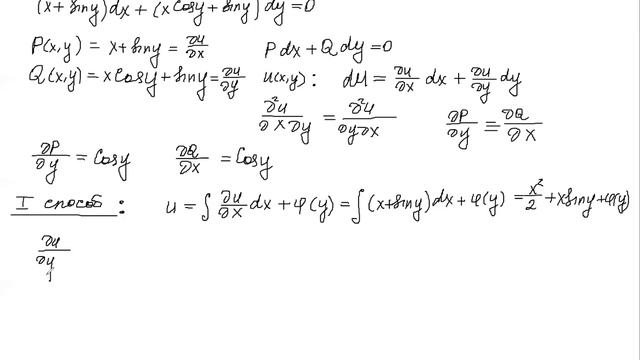 (x+siny)dx + (x cosy + siny) dy = 0
P(x,y) = x+siny = ∂u/∂x P dx + Q dy = 0
Q(x,y) = x cosy + siny = ∂u/∂y u(x,y) : du = ∂u/∂x dx + ∂u/∂y dy
∂²u/∂x∂y = ∂²u/∂y∂x ∂P/∂y ≡ ∂Q/∂x
∂P/∂y = cosy ∂Q/∂x = cosy
I способ : u = ∫ ∂u/∂x dx + φ(y) = ∫(x+siny)dx + φ(y) = x²/2 + x siny + φ(y)
∂u/∂y